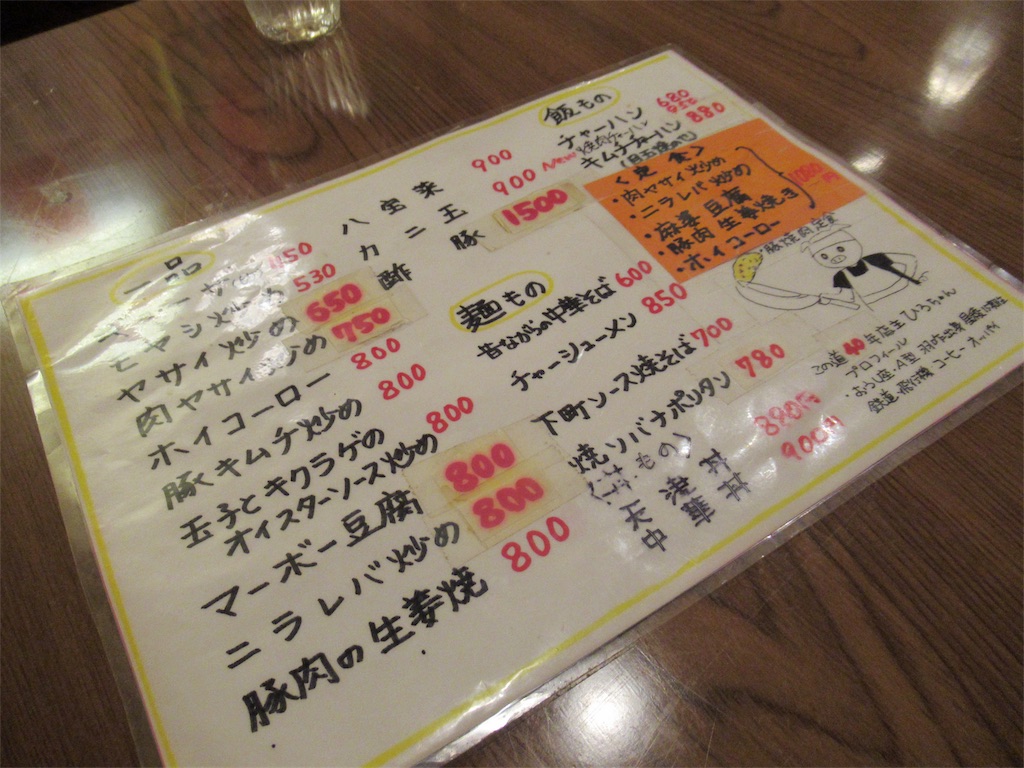 一品
モヤシ炒め 530
ヤサイ炒め 650
肉ヤサイ炒め 750
ホイコーロー 800
豚キムチ炒め 800
玉子とキクラゲの
オイスターソース炒め 800
マーボー豆腐 800
ニラレバ炒め 800
豚肉の生姜焼 800
八宝菜 900
カニ玉 900
酢豚 1500
麺もの
昔ながらの中華そば 600
チャーシューメン 850
下町ソース焼そば 700
焼ソバナポリタン 780
天津丼 880円
中華丼 900円
飯もの
チャーハン 680
New 焼肉チャーハン
キムチチャーハン 880
<定食>
・肉ヤサイ炒め
・ニラレバ炒め
・麻婆豆腐
・豚肉生姜焼き
・ホイコーロー
この道40年店主ひろちゃん
プロフィール
・おうし座・A型
鉄道 飛行機 コーヒー